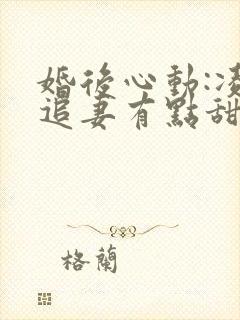 婚後心動:凌
追妻有點甜
格蘭